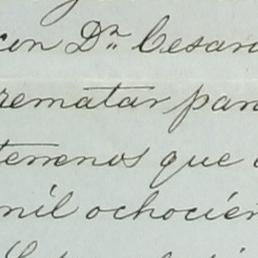 con Dn Cesar
rematar par
terrenos que
mil ochocien